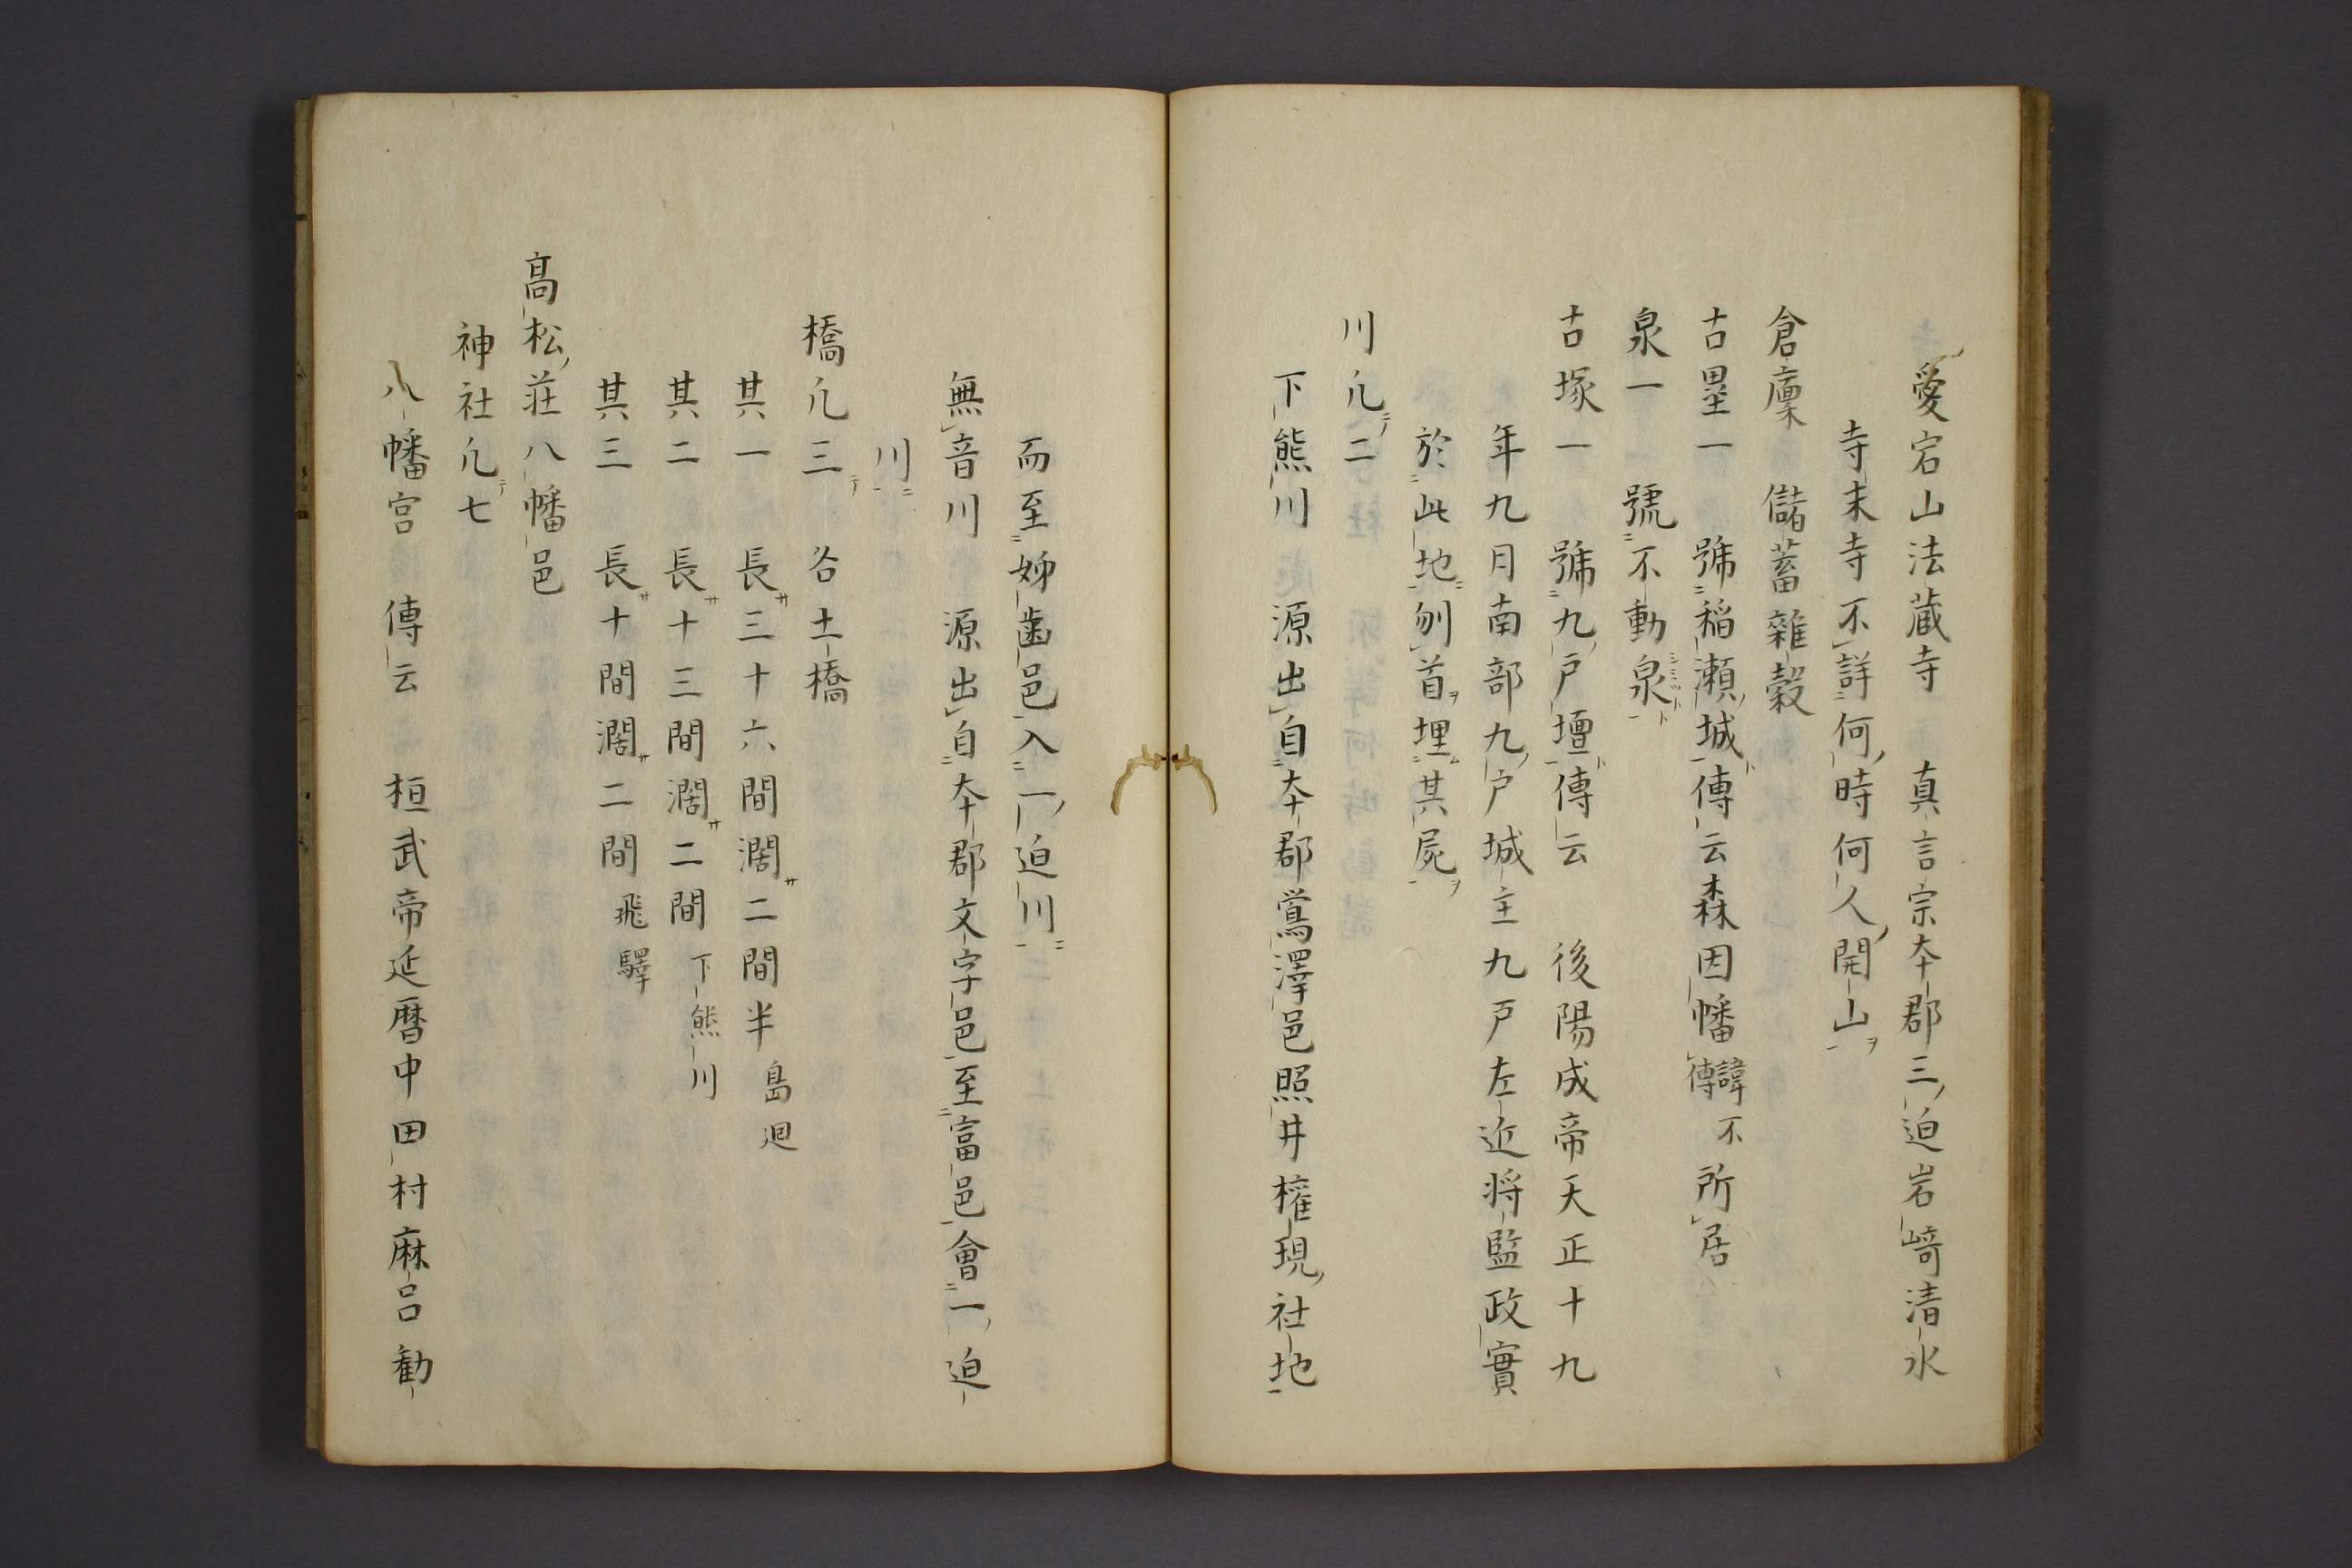 愛宕山法蔵寺　真言宗夲郡三迫岩﨑清水
寺末寺不詳何時何人開山
倉廩　儲蓄雜穀
古塁一　號稲瀬城傳云森因幡諱不傳所居
泉一　號不動泉
古塚一　號九戸壇傳云　後陽成帝天正十九
年九月南部九戸城主九戸左近将監政實
於此地刎首埋其屍
川凢二
下熊川　源出自夲郡鴬澤邑照井権現社地
而至姉歯邑入一迫川
無音川　源出自夲郡文字邑至富邑會一迫
川
橋凢三　各土橋
其一　長三十六間濶二間半　島廻
其二　長十三間濶二間　下熊川
其三　長十間濶二間　飛驛
髙松荘八幡邑
神社凢七
八幡宮　傳云　桓武帝延暦中田村麻呂勧